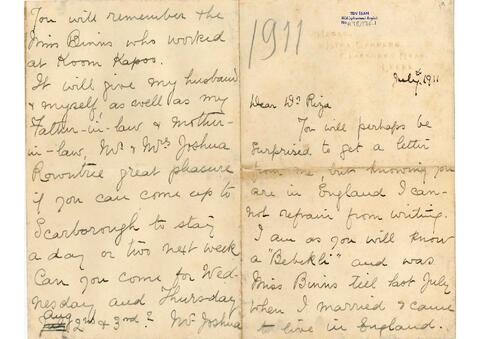 1911
July 1911
Dear Dr Riza
You will perhaps be
surprised to get a letter
from me, but knowing you
are in England I can-
not refrain from writing.
I am as you will know
a "Bebekli" and was
Miss Binns till last July
when I married & came
to live in England.
You will remember the
Miss Binns who worked
at Koom Kapou.
It will give my husband
& myself as well as my
Father-in-law & mother-
in-law, Mr & Mrs Joshua
Rowntree great pleasure
if you can come up to
Scarborough to stay
a day or two next week
Can you come for Wed-
nesday and Thursday
Aug 2nd & 3rd? Mr Joshua